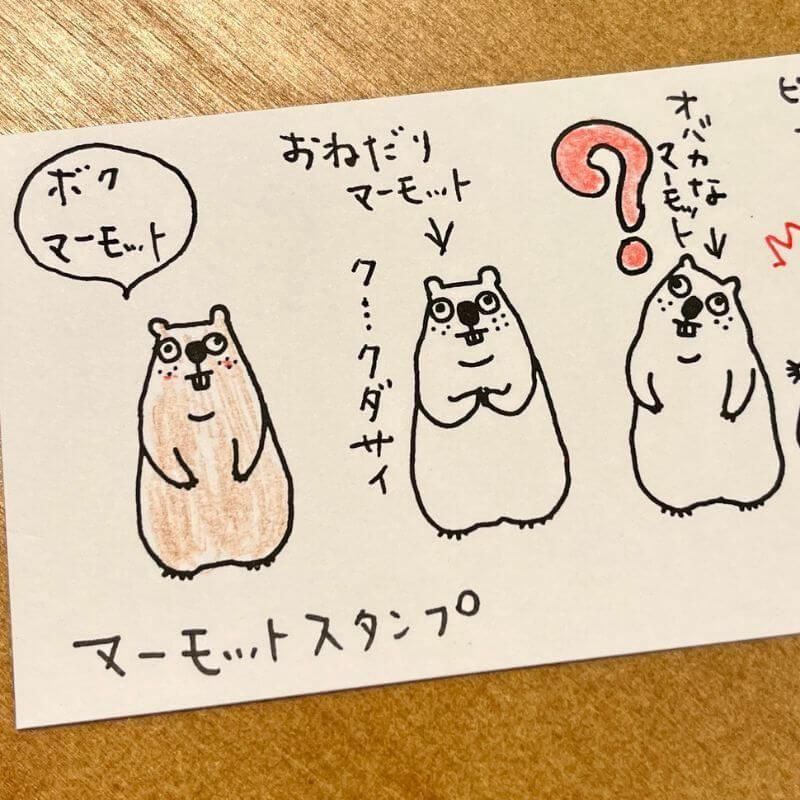 ボク
マーモット
おねだり
マーモット
ク…クダサイ
?
オバカな
マーモット
マーモットスタンプ